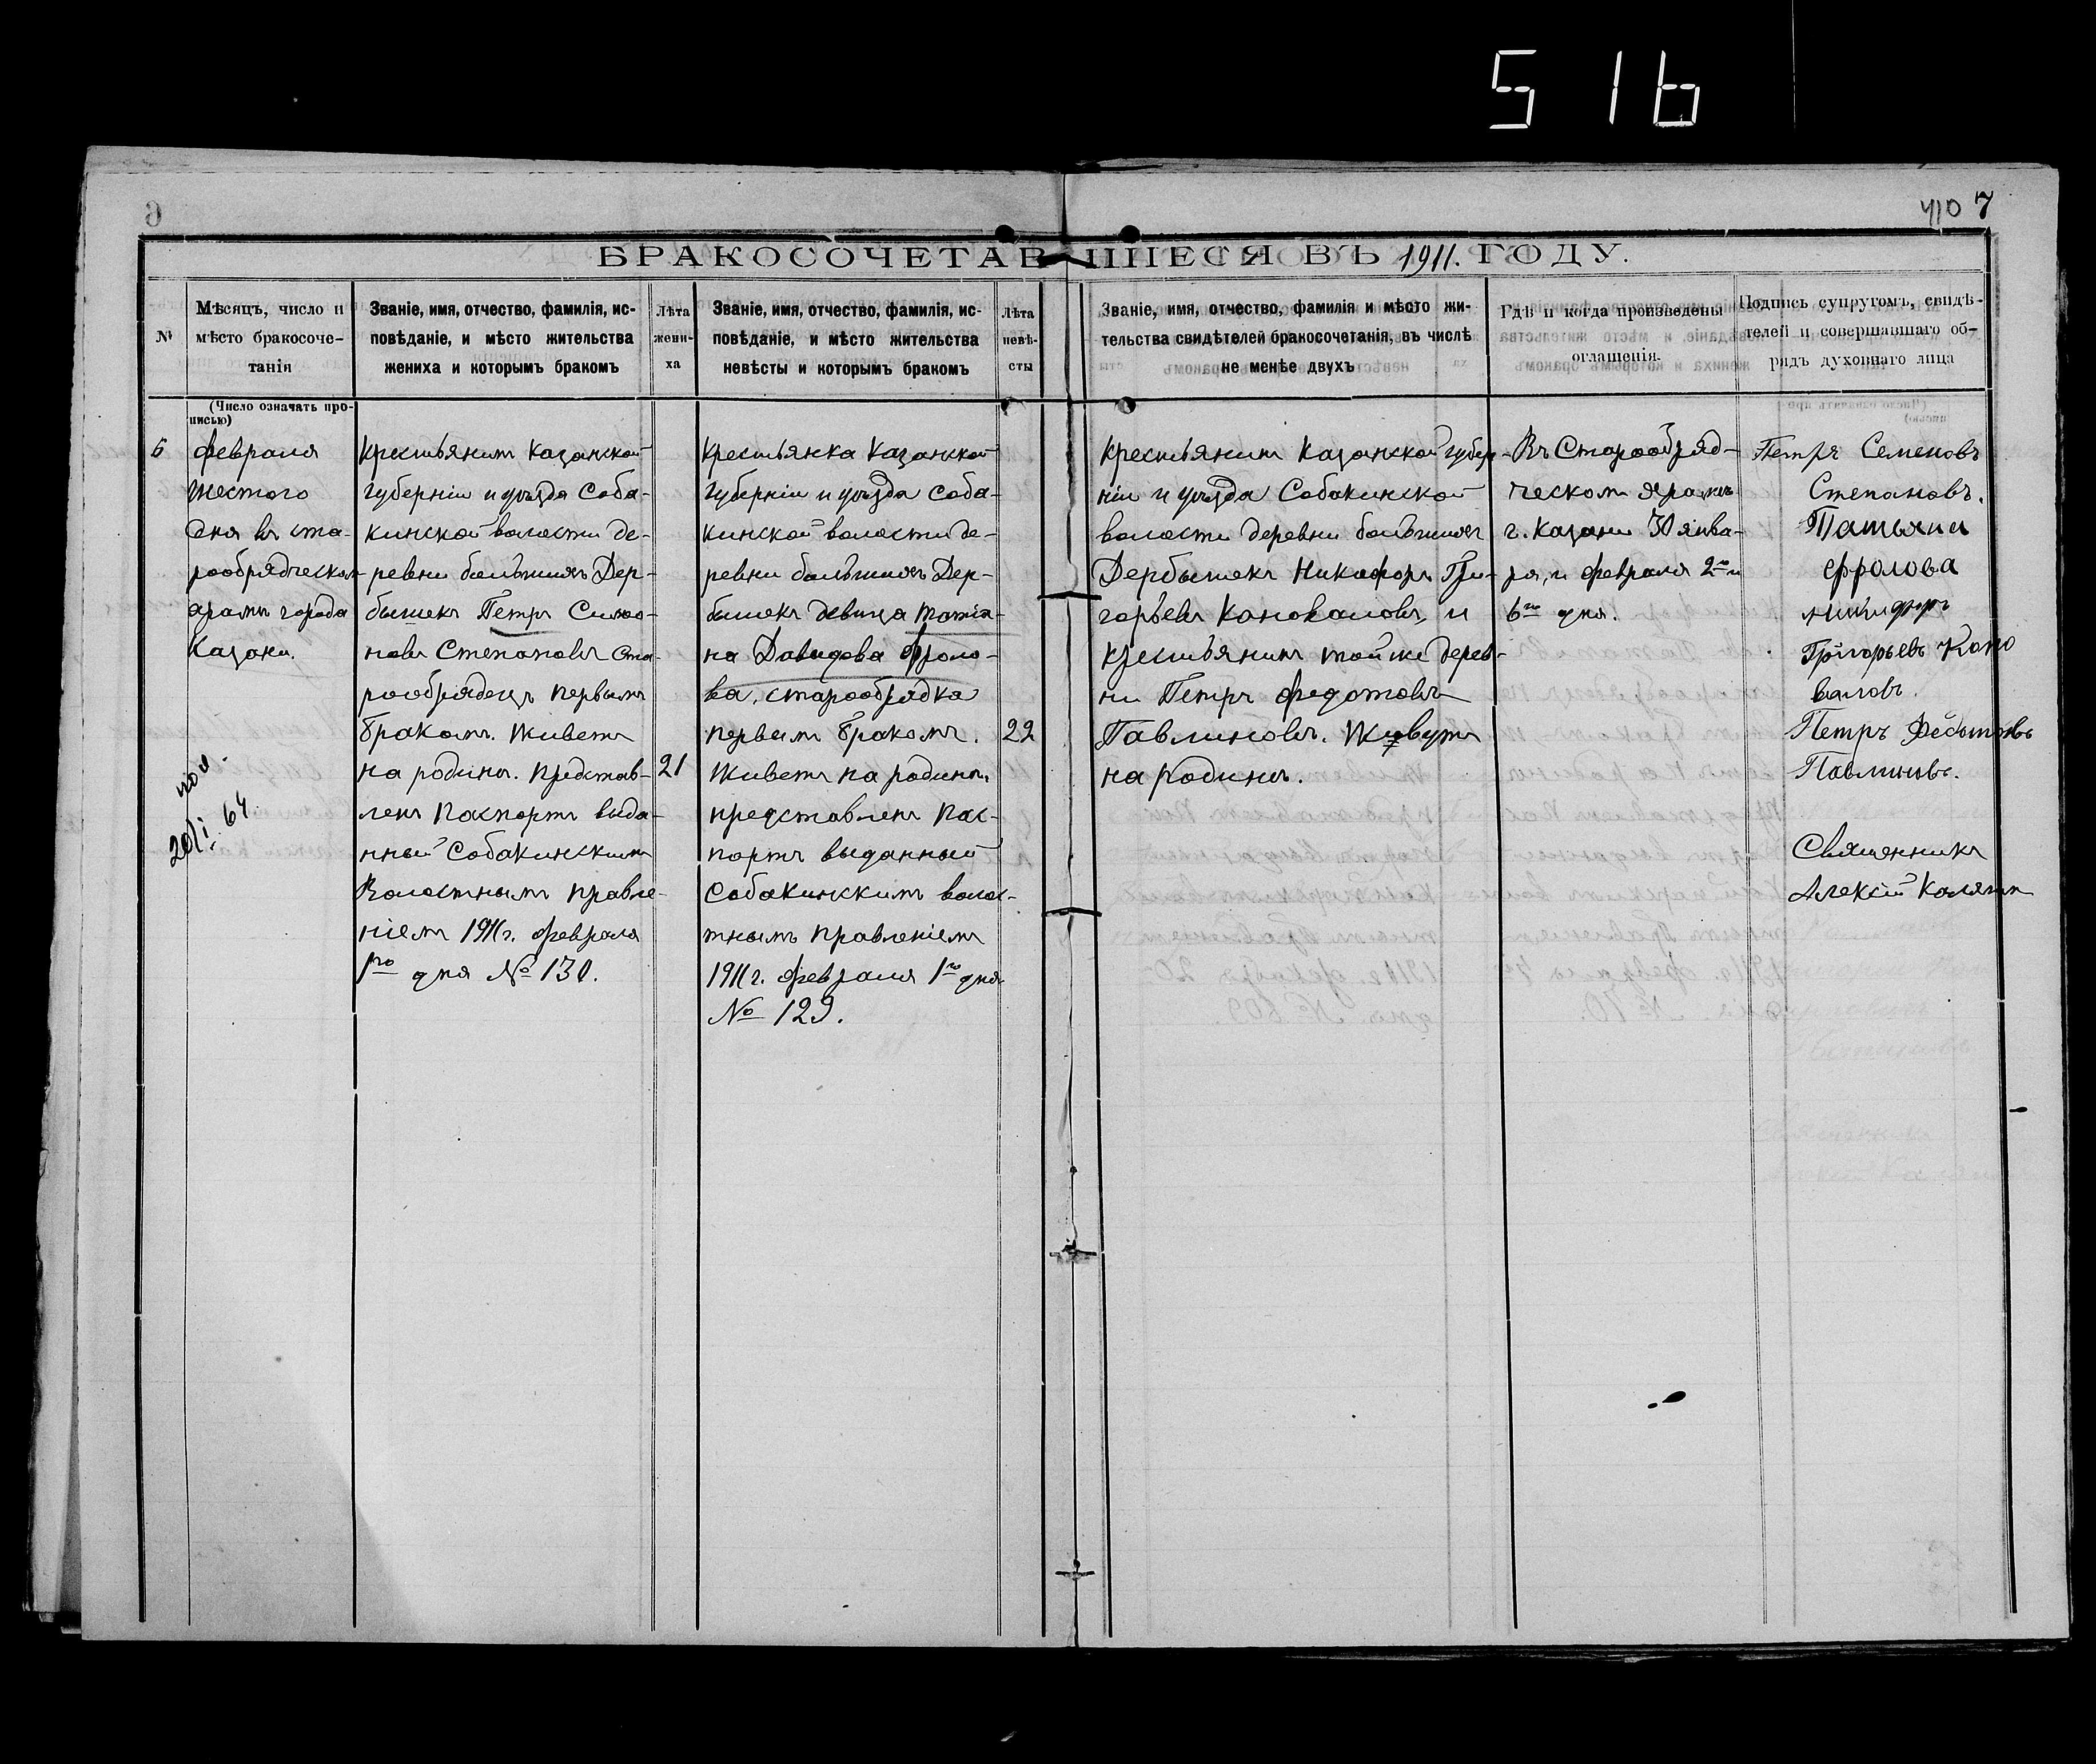 516
410 7
БРАКОСОЧЕТАВШІЕСЯ ВЪ 1911. ГОДУ.
№
Мѣсяцъ, число и
мѣсто бракосоче-
танія
Званіе, имя, отчество, фамилія, ис-
повѣданіе, и мѣсто жительства
жениха и которымъ бракомъ
Лѣта
жени-
ха
Званіе, имя, отчество, фамилія, ис-
повѣданіе, и мѣсто жительства
невѣсты и которымъ бракомъ
Лѣта
невѣ-
сты
Званіе, имя, отчество, фамилія и мѣсто жи-
тельства свидѣтелей бракосочетанія, въ числѣ
не менѣе двухъ
Гдѣ и когда произведены
оглашенія.
Подпись супругомъ, свидѣ-
телей и совершавшаго об-
рядъ духовнаго лица
(Число означать про-
писью)
6
февраля
шестого
дня въ ста-
рообрядческом
храмѣ города
Казани.
Крестьянинъ Казанской
губерніи и уѣзда Соба-
кинской волости де-
ревни большихъ Дер-
бышекъ Петръ Симео-
новъ Степановъ ста-
рообрядецъ первымъ
бракомъ. Живетъ
на родинѣ. Представ-
ленъ Паспортъ выда-
нный Собакинскимъ
Волостнымъ правле-
ніемъ 1911 г. февраля
1го дня № 130.
21
Крестьянка Казанской
губерніи и уѣзда Соба-
кинской волости де-
ревни большихъ Дер-
бишекъ девица Татія-
на Давидова Фроло-
ва, старообрядка
первымъ бракомъ.
Живетъ на родинѣ.
представленъ Пас-
портъ выданный
Собакинскимъ волос-
тнымъ правленіемъ
1911 г. февраля 1го дня
№ 129.
22
Крестьянинъ Казанской губер-
ніи и уѣзда Собакинской
волости деревни большихъ
Дербышекъ Никифоръ Гри-
горьевъ Коноваловъ, и
Крестьянинъ той же дерев-
ни Петръ Федотовъ
Павлиновъ. Живутъ
на родинѣ.
Въ Старообряд-
ческом храмѣ
г. Казани 30 янва-
ря, и февраля 2го и
6го дня.
Петръ Семеновъ
Степановъ.
Татьяна
Фролова
никифоръ
Григорьевъ Коно
валовъ.
Петръ Федотовъ
Павлиновъ.
Священникъ
Алексій Калягин
20/I 64